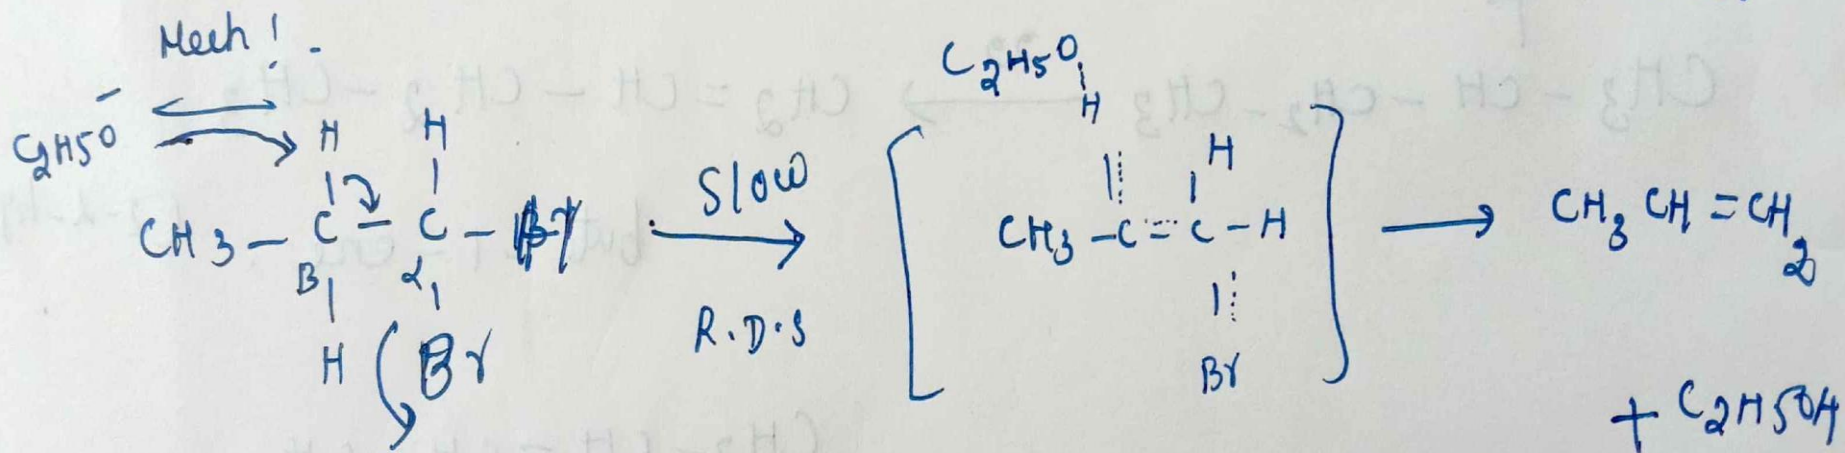 Mech! .
C2H5O⁻
H H
CH3 - C - C -
B α
H Br
Slow
R.D.S
C2H5O
H
H
CH3 - C = C - H
Br
CH3 CH = CH2
+ C2H5OH